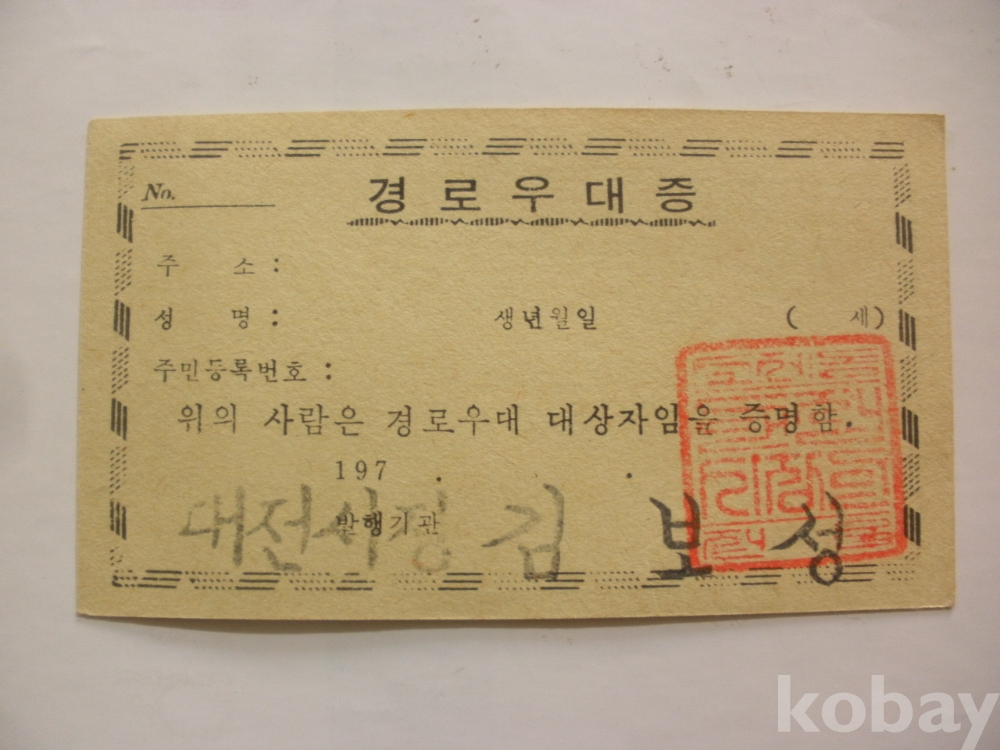 No.
경로우대증
주 소 :
성 명 : 생년월일 ( 세)
주민등록번호 :
위의 사람은 경로우대 대상자임을 증명함.
197 . .
발행기관
대전시장 김 보 성
kobay